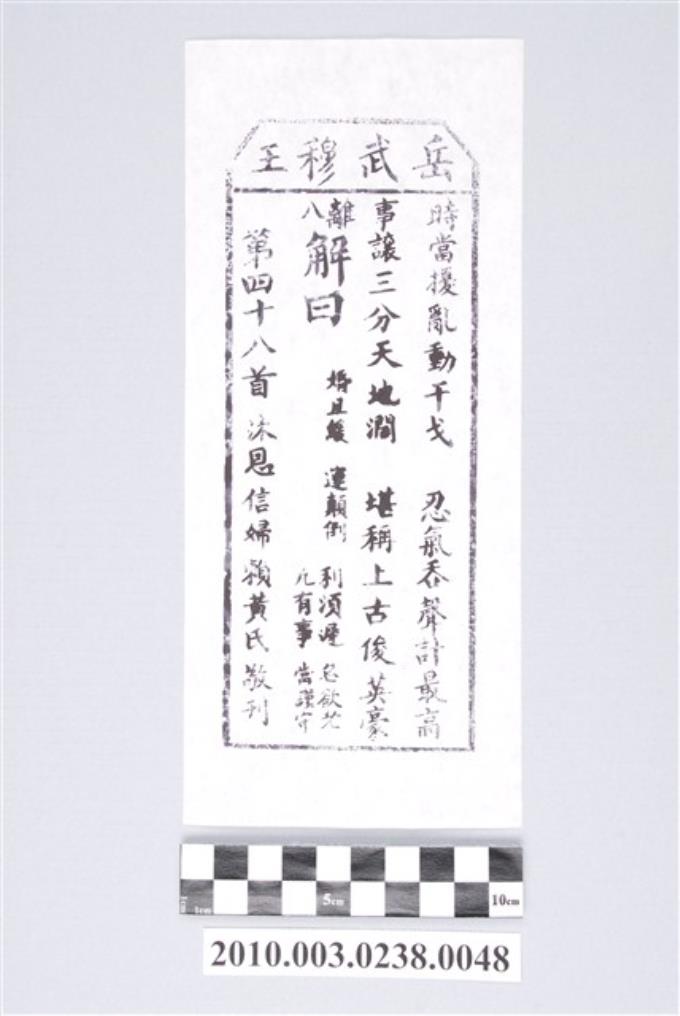 岳武穆王
時當擾亂動干戈 忍氣吞聲計最高
事讓三分天地濶 堪稱上古俊英豪
離八
解曰
婚且緩 運顛倒 利須遲 名欲允
凡有事 當謹守
第四十八首 沐恩信婦賴黃氏敬刊
1cm
1cm
5cm
10cm
2010.003.0238.0048